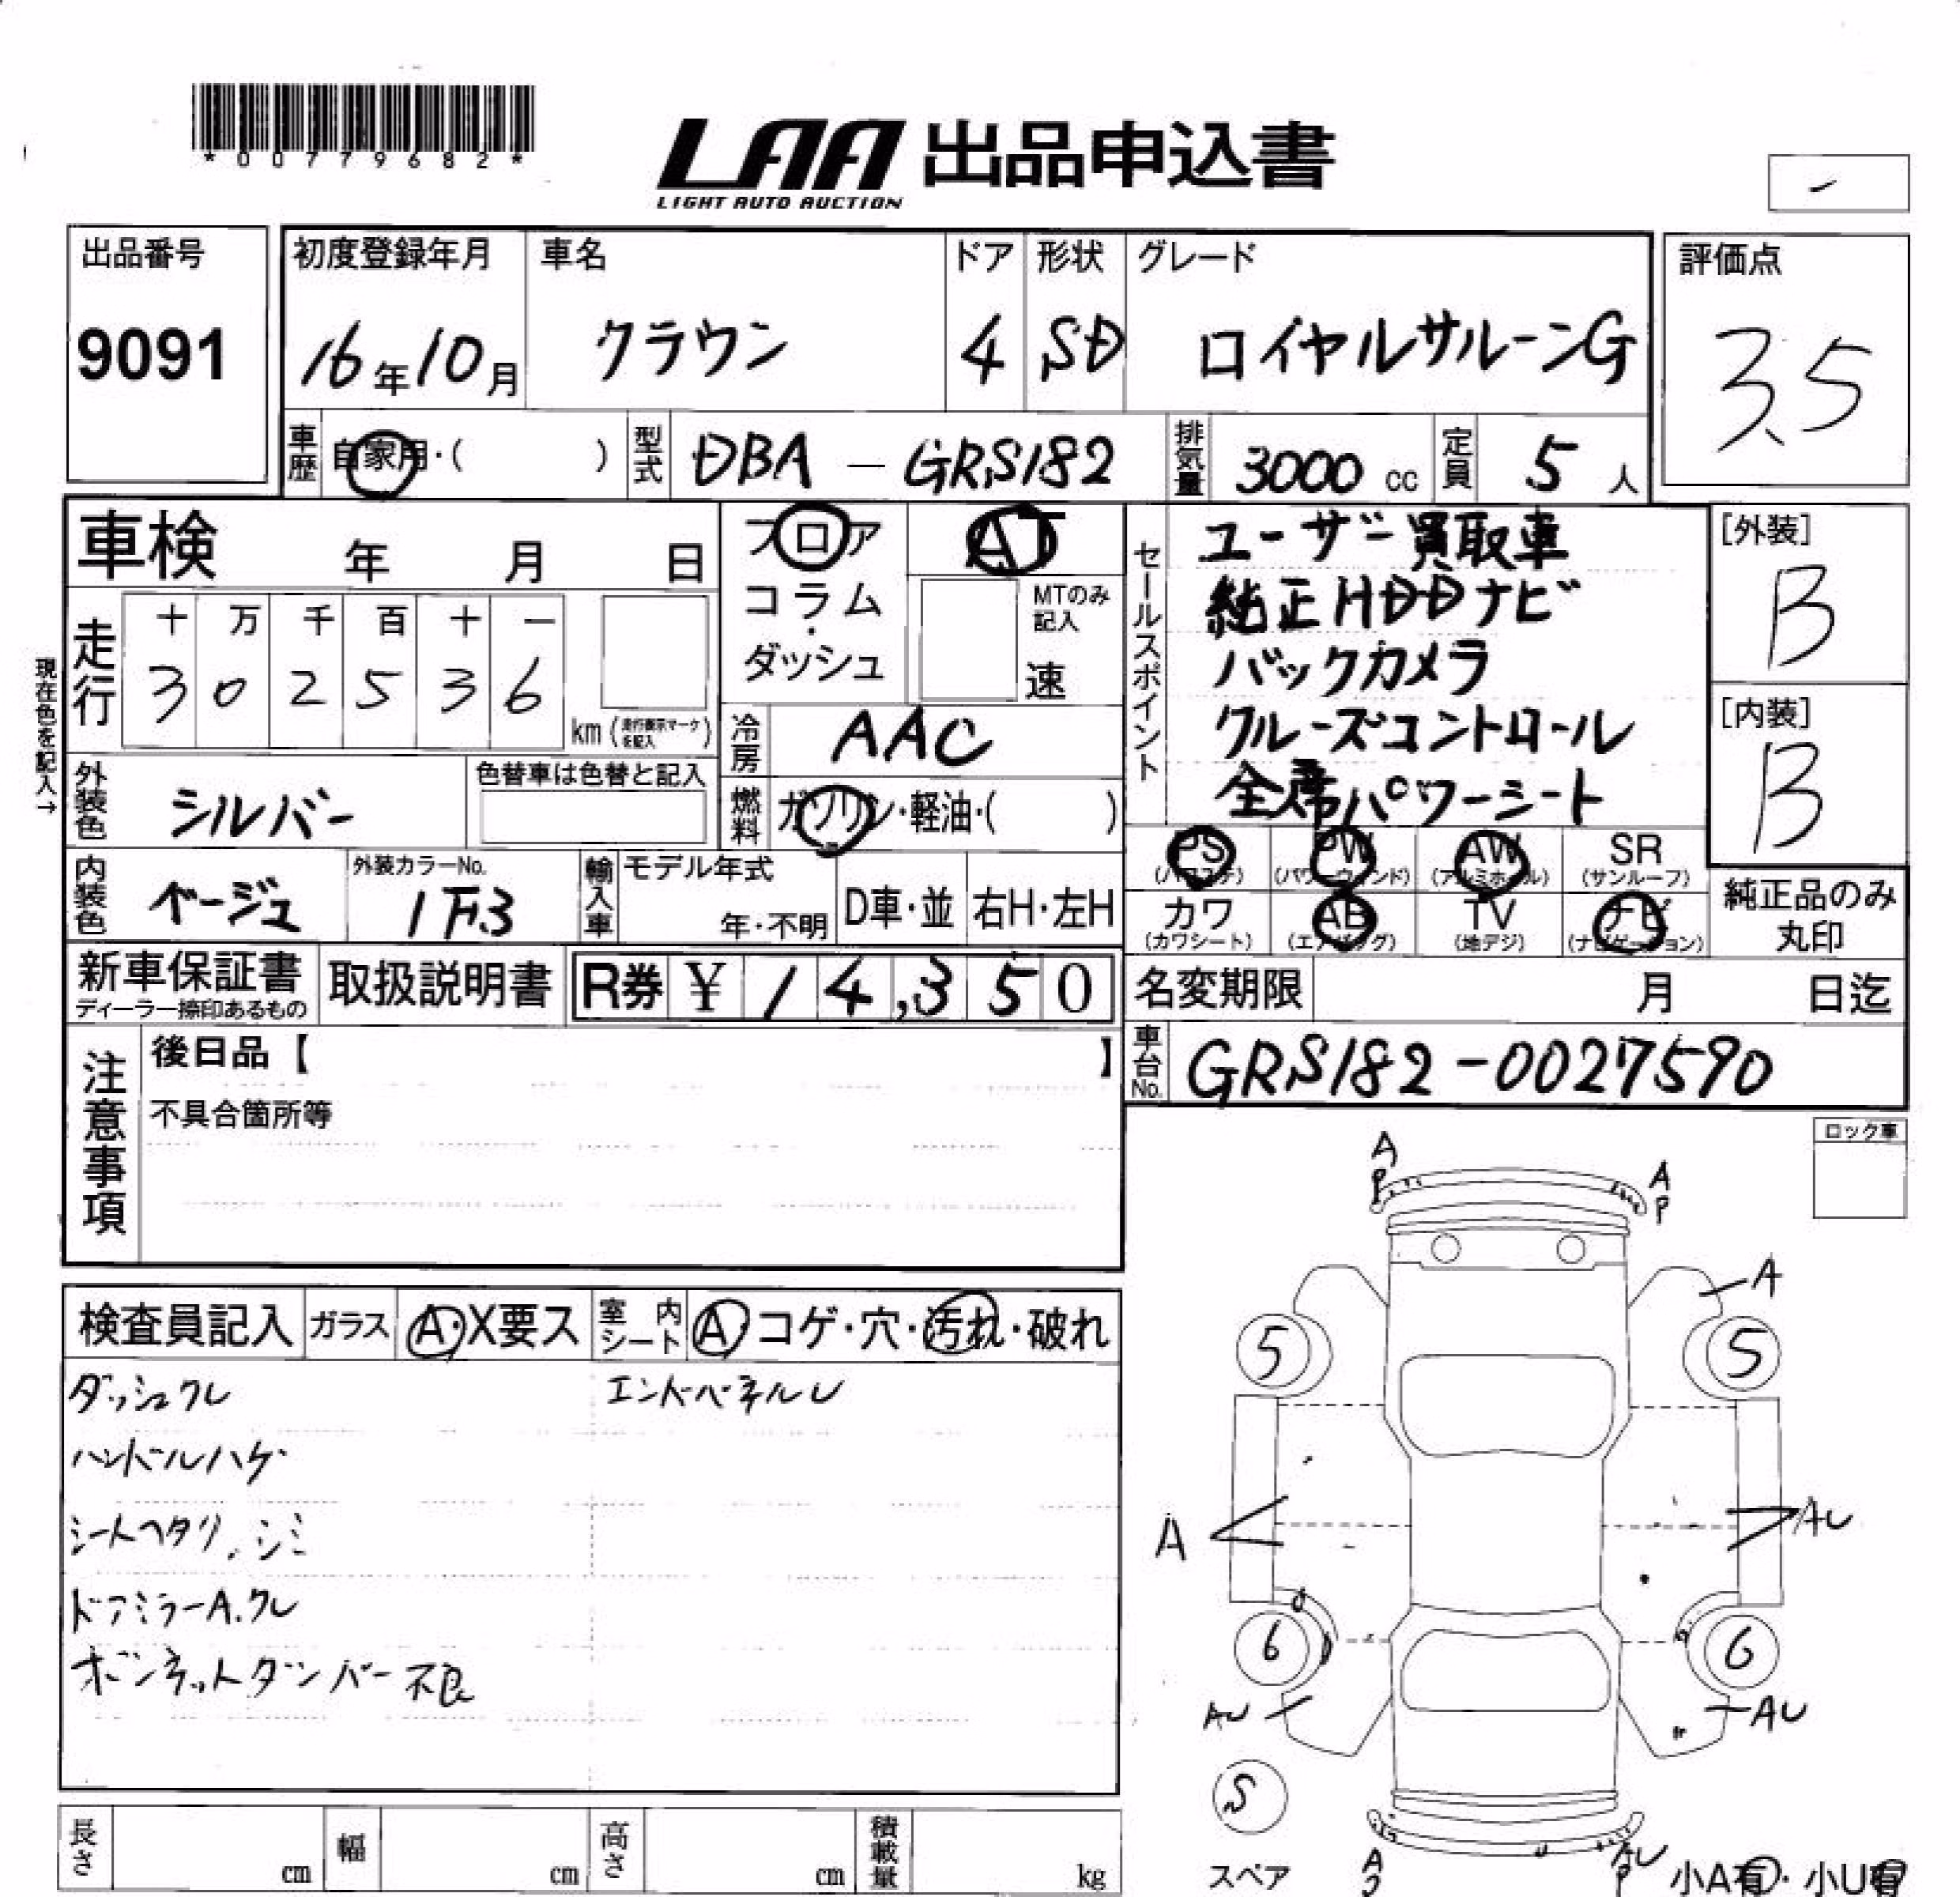 *007779682*
LAA 出品申込書
LIGHT AUTO AUCTION
出品番号
9091
初度登録年月
16年10月
車名
クラウン
ドア
4
形状
SD
グレード
ロイヤルサルーンG
評価点
3.5
車歴 自家用・( )
型式 DBA-GRS182
排気量 3000cc
定員 5人
車検 年 月 日
フロア
コラム
・
ダッシュ
AT
MTのみ
記入
速
セールスポイント
ユーザー買取車
純正HDDナビ
バックカメラ
クルーズコントロール
全席パワーシート
[外装]
B
[内装]
B
現在色を記入→
走行
十 万 千 百 十 一
3 0 2 5 3 6
km (走行表示マークを記入)
冷房 AAC
外装色 シルバー
色替車は色替と記入
燃料 ガソリン・軽油・( )
内装色 ベージュ
外装カラーNo.
1F3
輸入車
モデル年式
年・不明
D車・並
右H・左H
PS
(パワステ)
PW
(パワーウィンド)
AW
(アルミホイール)
SR
(サンルーフ)
カワ
(カワシート)
AB
(エアバッグ)
TV
(地デジ)
ナビ
(ナビゲーション)
純正品のみ
丸印
新車保証書
ディーラー捺印あるもの
取扱説明書
R券 ¥ 14,350
名変期限 月 日迄
車台No. GRS182-0027590
注意事項
後日品【 】
不具合箇所等
ロック車
検査員記入
ガラス A・X要ス
室内シート A コゲ・穴・汚れ・破れ
ダッシュクレ
ハンドルハゲ
シートヘタリ.シミ
ドアミラーA.クレ
ボンネットダンパー不良
エンドパネルU
A
P
A
P
A
5
5
A
AU
6
6
AU
AU
S
スペア
A
AU
P
小A有・小U有
長さ cm
幅 cm
高さ cm
積載量 kg